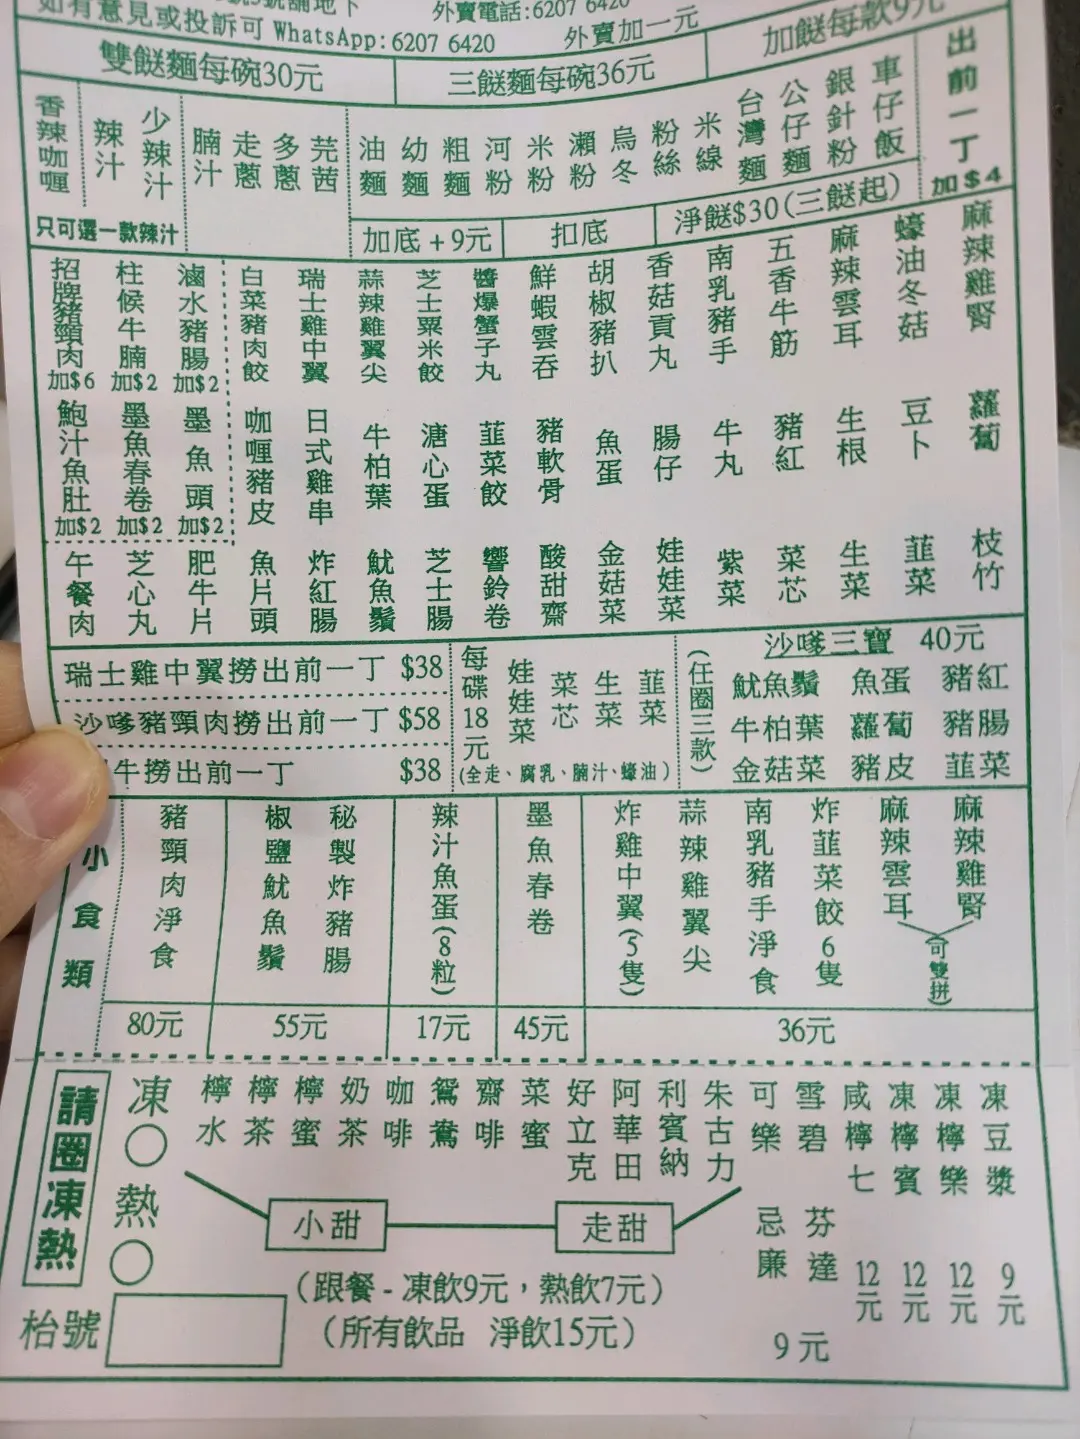 號舖地下
外賣電話:6207 6420
如有意見或投訴可 WhatsApp: 6207 6420
外賣加一元
雙餸麵每碗30元
三餸麵每碗36元
加餸每款9元
香辣咖喱
辣汁
少辣汁
只可選一款辣汁
腩汁
走蔥
多蔥
芫茜
油麵
幼麵
粗麵
河粉
米粉
瀨粉
烏冬
粉絲
米線
台灣麵
公仔麵
銀針粉
車仔飯
出前一丁
加$4
加底 +9元
扣底
淨餸$30(三餸起)
招牌豬頸肉 加$6
柱候牛腩 加$2
滷水豬腸 加$2
白菜豬肉餃
瑞士雞中翼
蒜辣雞翼尖
芝士粟米餃
醬爆蟹子丸
鮮蝦雲吞
胡椒豬扒
香菇貢丸
南乳豬手
五香牛筋
麻辣雲耳
蠔油冬菇
麻辣雞腎
鮑汁魚肚 加$2
墨魚春卷 加$2
墨魚頭 加$2
咖喱豬皮
日式雞串
牛柏葉
溏心蛋
韮菜餃
豬軟骨
魚蛋
腸仔
牛丸
豬紅
生根
豆卜
蘿蔔
午餐肉
芝心丸
肥牛片
魚片頭
炸紅腸
魷魚鬚
芝士腸
響鈴卷
酸甜齋
金菇菜
娃娃菜
紫菜
菜芯
生菜
韮菜
枝竹
瑞士雞中翼撈出前一丁 $38
沙嗲豬頸肉撈出前一丁 $58
牛撈出前一丁 $38
每碟18元
娃娃菜
菜芯
生菜
韮菜
(全走、腐乳、腩汁、蠔油)
(任圈三款)
沙嗲三寶 40元
魷魚鬚 魚蛋 豬紅
牛柏葉 蘿蔔 豬腸
金菇菜 豬皮 韮菜
小食類
豬頸肉淨食
椒鹽魷魚鬚
秘製炸豬腸
辣汁魚蛋(8粒)
墨魚春卷
炸雞中翼(5隻)
蒜辣雞翼尖
南乳豬手淨食
炸韮菜餃6隻
麻辣雲耳
麻辣雞腎
(可雙拼)
80元
55元
17元
45元
36元
請圈凍熱
凍
熱
檸水
檸茶
檸蜜
奶茶
咖啡
鴛鴦
齋啡
菜蜜
好立克
阿華田
利賓納
朱古力
可樂
雪碧
忌廉
芬達
9元
咸檸七 12元
凍檸賓 12元
凍檸樂 12元
凍豆漿 9元
小甜
走甜
(跟餐 - 凍飲9元，熱飲7元)
(所有飲品 淨飲15元)
枱號